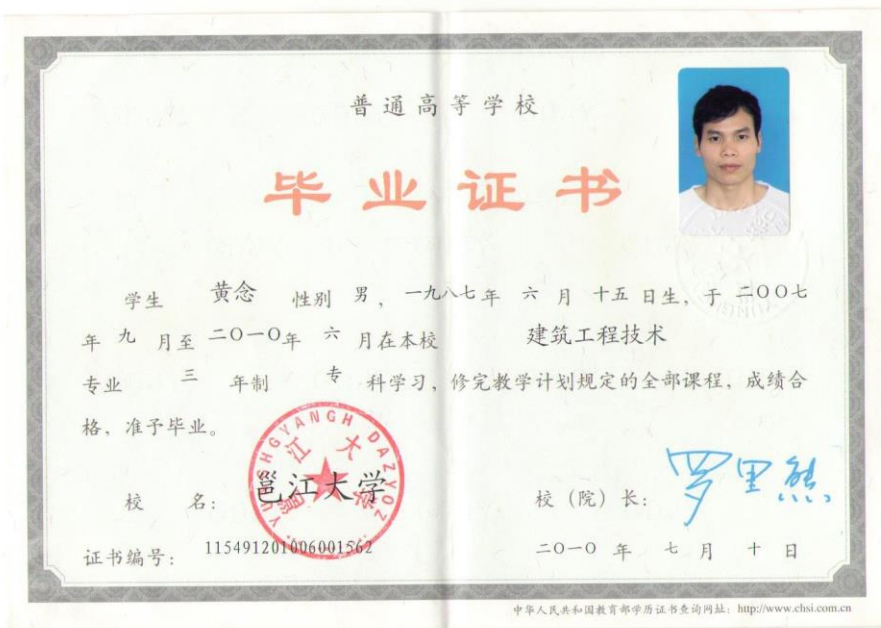 普通高等学校
毕业证书
学生 黄念 性别 男，一九八七年 六 月 十五 日生，于 二〇〇七
年 九 月至 二〇一〇年 六 月在本校 建筑工程技术
专业 三 年制 专 科学习，修完教学计划规定的全部课程，成绩合
格，准予毕业。
YUNGHGYANGH DAZYOZ
邕江大学
校 名： 邕江大学
校（院）长： 罗里熊
证书编号： 115491201006001562
二〇一〇 年 七 月 十 日
中华人民共和国教育部学历证书查询网址：http://www.chsi.com.cn